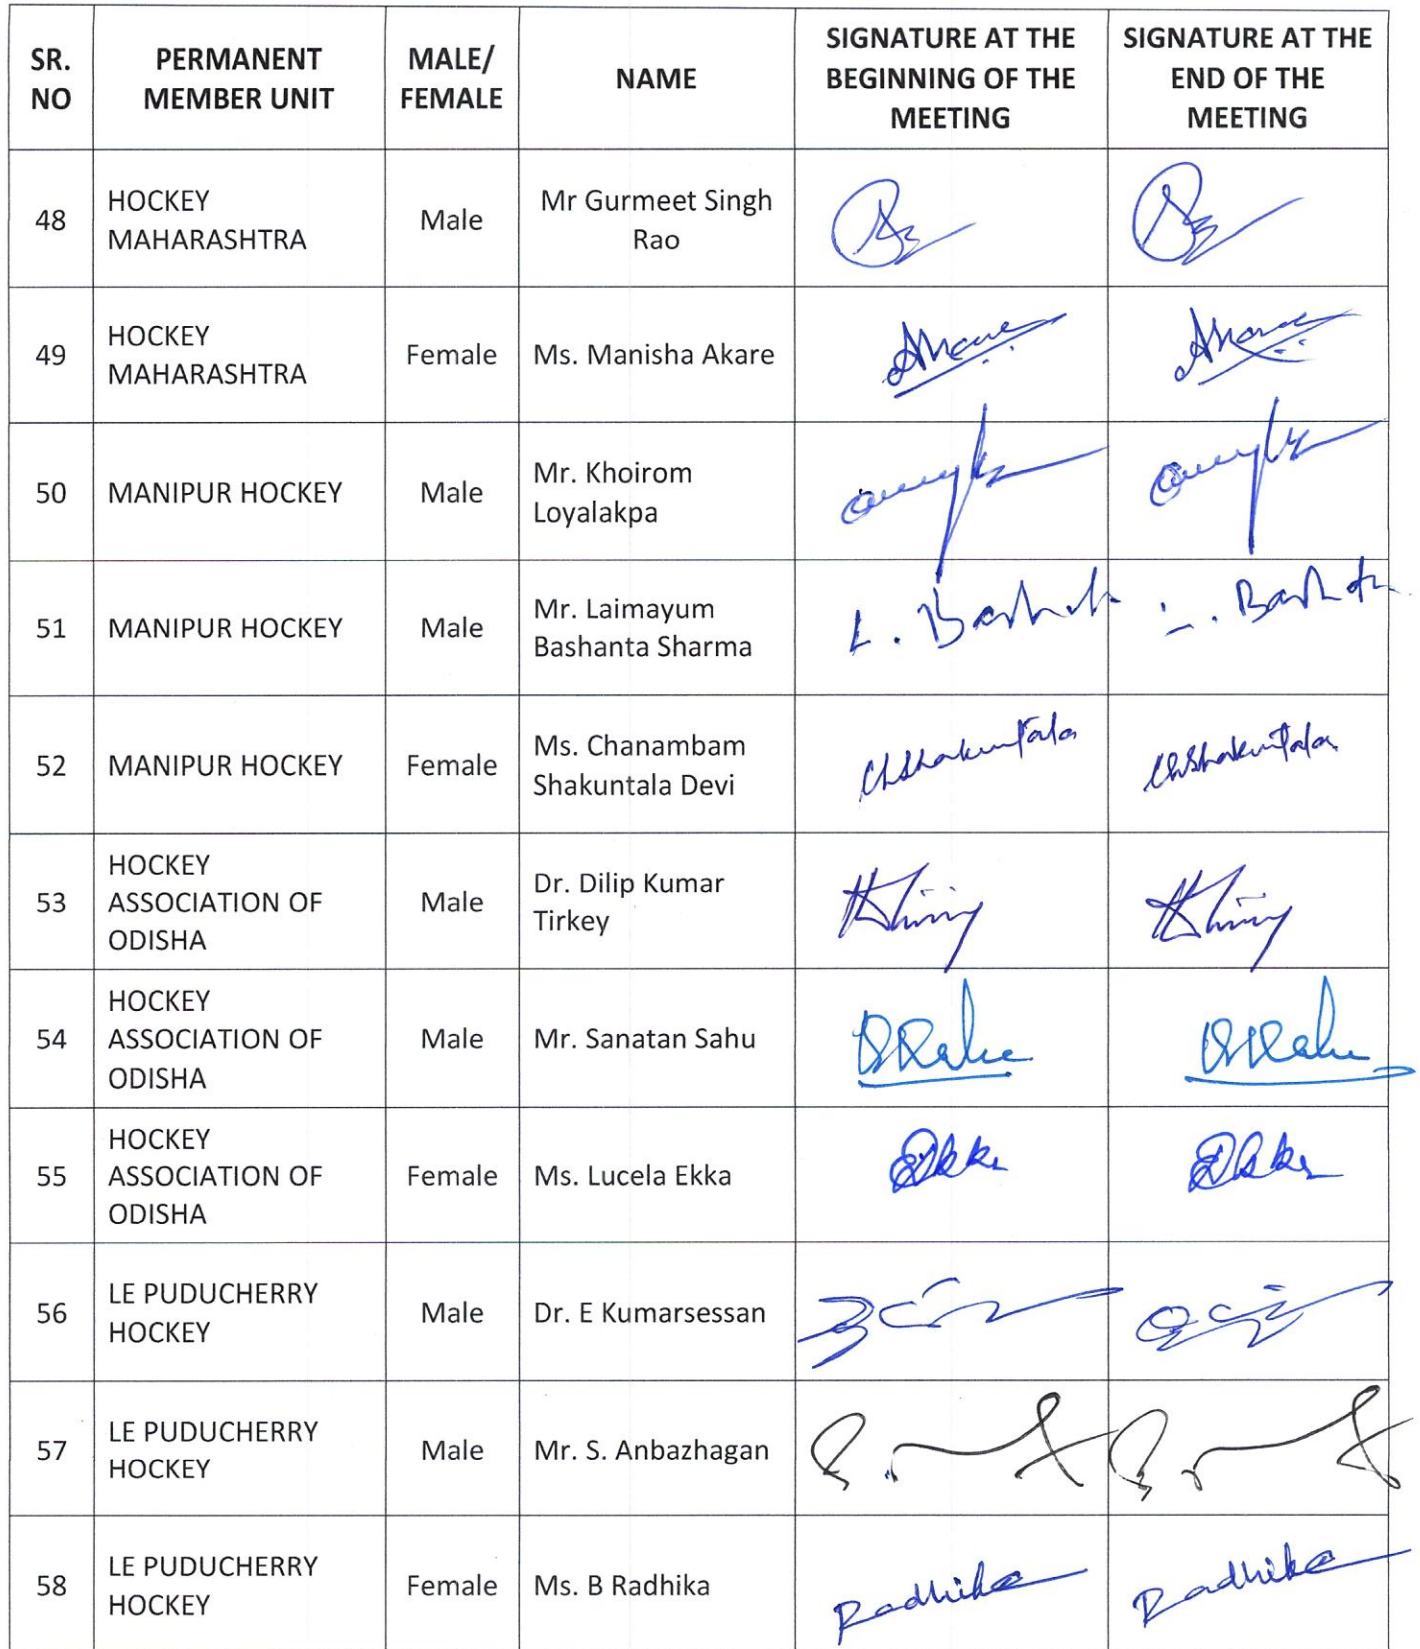 SR. NO
PERMANENT MEMBER UNIT
MALE/ FEMALE
NAME
SIGNATURE AT THE BEGINNING OF THE MEETING
SIGNATURE AT THE END OF THE MEETING
48
HOCKEY
MAHARASHTRA
Male
Mr Gurmeet Singh
Rao
49
HOCKEY
MAHARASHTRA
Female
Ms. Manisha Akare
50
MANIPUR HOCKEY
Male
Mr. Khoirom
Loyalakpa
51
MANIPUR HOCKEY
Male
Mr. Laimayum
Bashanta Sharma
52
MANIPUR HOCKEY
Female
Ms. Chanambam
Shakuntala Devi
Ch Shakuntala
Ch Shakuntala
53
HOCKEY
ASSOCIATION OF
ODISHA
Male
Dr. Dilip Kumar
Tirkey
54
HOCKEY
ASSOCIATION OF
ODISHA
Male
Mr. Sanatan Sahu
55
HOCKEY
ASSOCIATION OF
ODISHA
Female
Ms. Lucela Ekka
56
LE PUDUCHERRY
HOCKEY
Male
Dr. E Kumarsessan
57
LE PUDUCHERRY
HOCKEY
Male
Mr. S. Anbazhagan
58
LE PUDUCHERRY
HOCKEY
Female
Ms. B Radhika
Radhika
Radhika